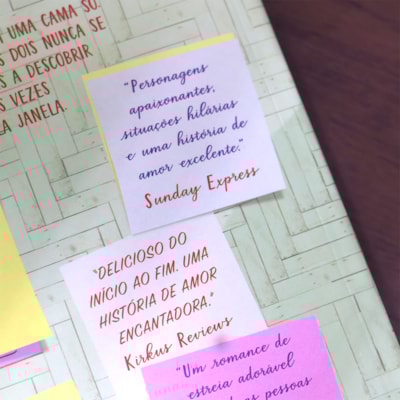 UMA CAMA SU
DOIS NUNCA SE
A DESCOBRIR
VEZES
JANELA.
"Personagens
apaixonantes,
situações hilárias
e uma história de
amor excelente."
Sunday Express
"DELICIOSO DO
INÍCIO AO FIM. UMA
HISTÓRIA DE AMOR
ENCANTADORA."
Kirkus Reviews
"Um romance de
estreia adorável
pessoas